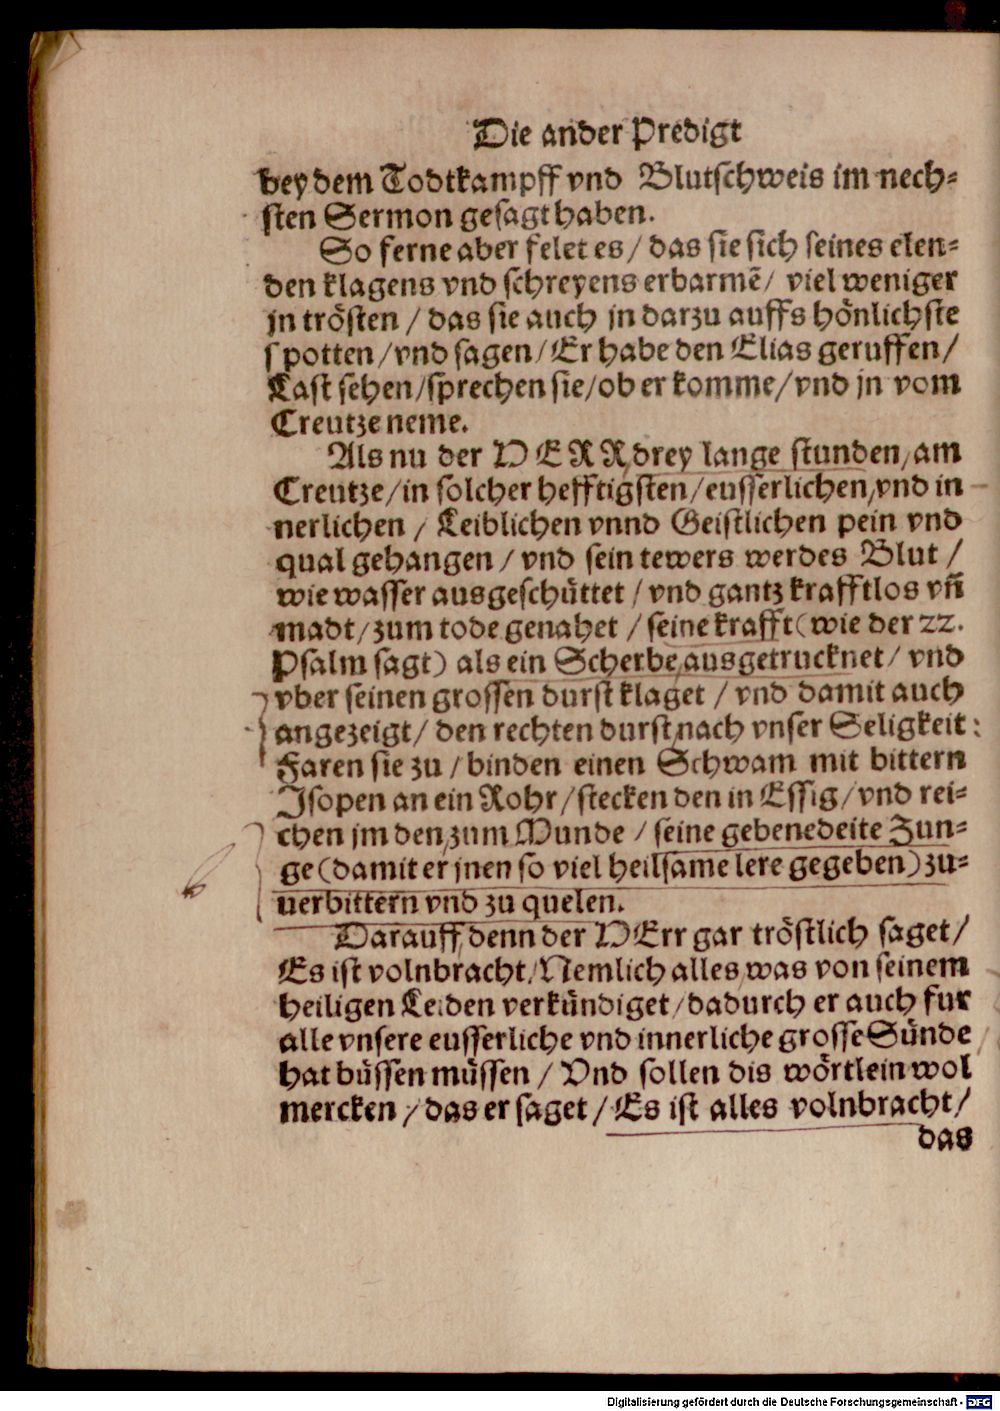 Die ander Predigt
bey dem Todtkampff vnd Blutschweis im nech-
sten Sermon gesagt haben.
So ferne aber felet es / das sie sich seines elen-
den klagens vnd schreyens erbarmẽ / viel weniger
jn trösten / das sie auch jn darzu auffs hönlichste
spotten / vnd sagen / Er habe den Elias geruffen /
Last sehen / sprechen sie / ob er komme / vnd jn vom
Creutze neme.
Als nu der HERR, drey lange stunden, am
Creutze / in solcher hefftigsten / eusserlichen, vnd in
nerlichen / Leiblichen vnnd Geistlichen pein vnd
qual gehangen / vnd sein tewers werdes Blut /
wie wasser ausgeschüttet / vnd gantz krafftlos vñ
madt / zum tode genahet / seine krafft (wie der 22.
Psalm sagt) als ein Scherbe, ausgetrucknet / vnd
vber seinen grossen durst klaget / vnd damit auch
angezeigt / den rechten durst, nach vnser Seligkeit:
Faren sie zu / binden einen Schwam mit bittern
Jsopen an ein Rohr / stecken den in Essig / vnd rei-
chen jm den, zum Munde / seine gebenedeite Zun-
ge (damit er jnen so viel heilsame lere gegeben) zu-
uerbittern vnd zu quelen.
Darauff, denn der HErr gar tröstlich saget /
Es ist volnbracht / Nemlich alles, was von seinem
heiligen Leiden verkündiget / dadurch er auch fur
alle vnsere eusserliche vnd innerliche grosse Sünde
hat büssen müssen / Vnd sollen dis wörtlein wol
mercken / das er saget / Es ist alles volnbracht /
das
Digitalisierung gefördert durch die Deutsche Forschungsgemeinschaft - DFG